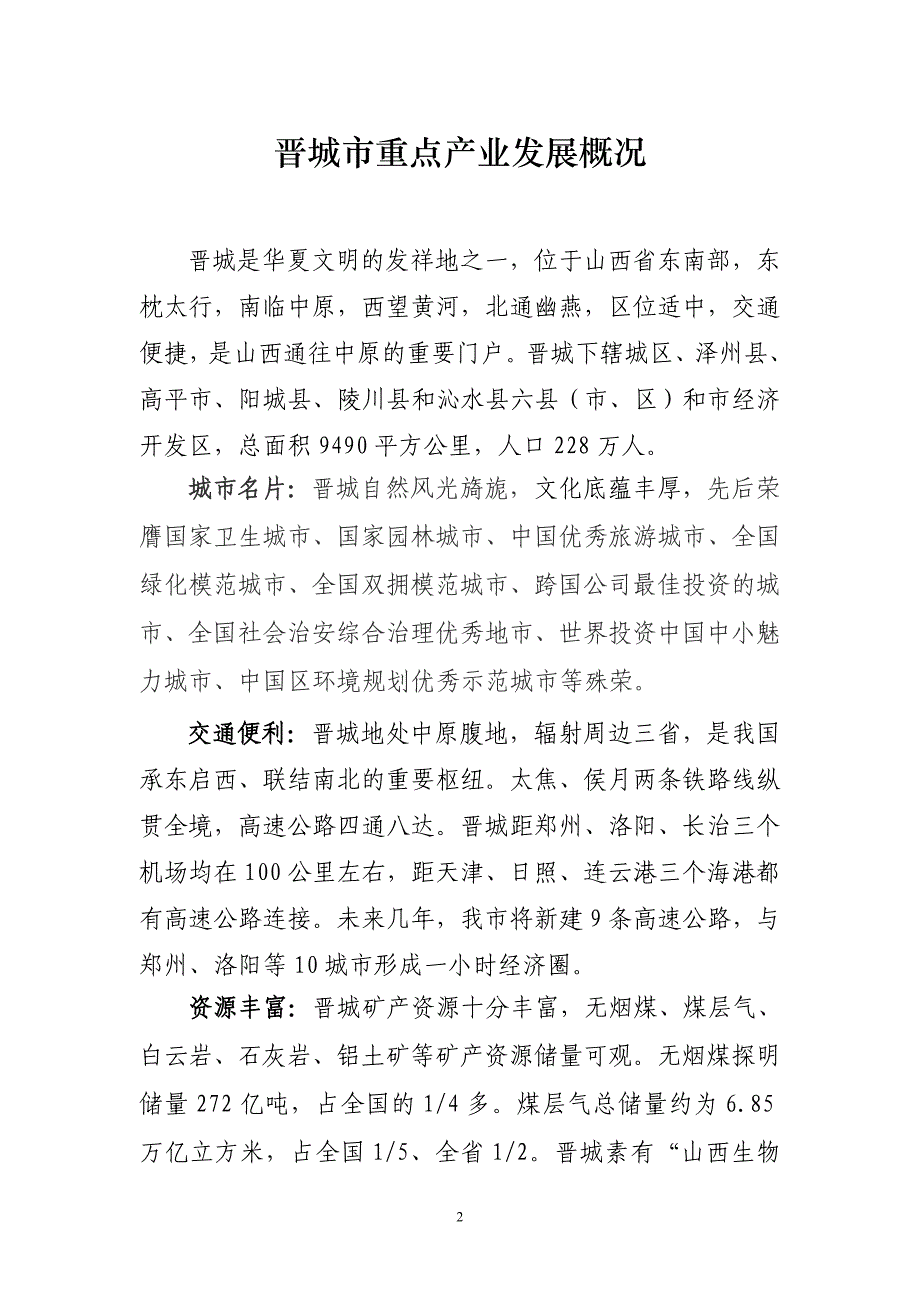 晋城市重点产业发展概况
晋城是华夏文明的发祥地之一，位于山西省东南部，东
枕太行，南临中原，西望黄河，北通幽燕，区位适中，交通
便捷，是山西通往中原的重要门户。晋城下辖城区、泽州县、
高平市、阳城县、陵川县和沁水县六县（市、区）和市经济
开发区，总面积 9490 平方公里，人口 228 万人。
城市名片：晋城自然风光旖旎，文化底蕴丰厚，先后荣
膺国家卫生城市、国家园林城市、中国优秀旅游城市、全国
绿化模范城市、全国双拥模范城市、跨国公司最佳投资的城
市、全国社会治安综合治理优秀地市、世界投资中国中小魅
力城市、中国区环境规划优秀示范城市等殊荣。
交通便利：晋城地处中原腹地，辐射周边三省，是我国
承东启西、联结南北的重要枢纽。太焦、侯月两条铁路线纵
贯全境，高速公路四通八达。晋城距郑州、洛阳、长治三个
机场均在 100 公里左右，距天津、日照、连云港三个海港都
有高速公路连接。未来几年，我市将新建 9 条高速公路，与
郑州、洛阳等 10 城市形成一小时经济圈。
资源丰富：晋城矿产资源十分丰富，无烟煤、煤层气、
白云岩、石灰岩、铝土矿等矿产资源储量可观。无烟煤探明
储量 272 亿吨，占全国的 1/4 多。煤层气总储量约为 6.85
万亿立方米，占全国 1/5、全省 1/2。晋城素有“山西生物
2